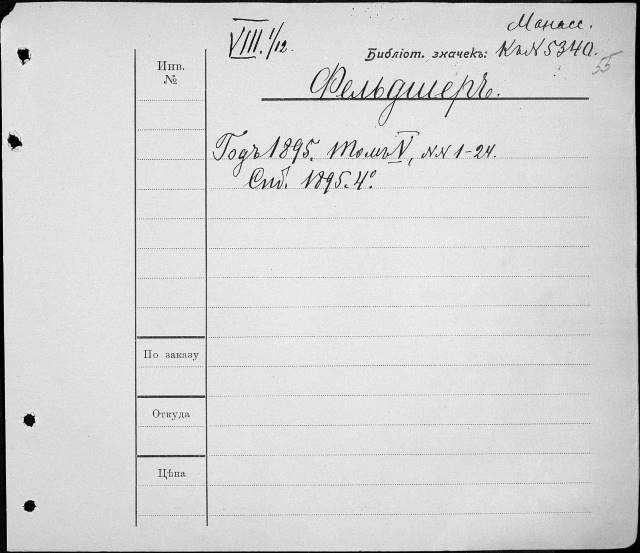 Манасс.
VIII. 1/12.
Библіот. значекъ: КъN534a.
55
Инв.
№
Фельдшеръ.
Годъ 1895. Томъ V, NN 1-24.
Спб. 1895. 4°.
По заказу
Откуда
Цѣна